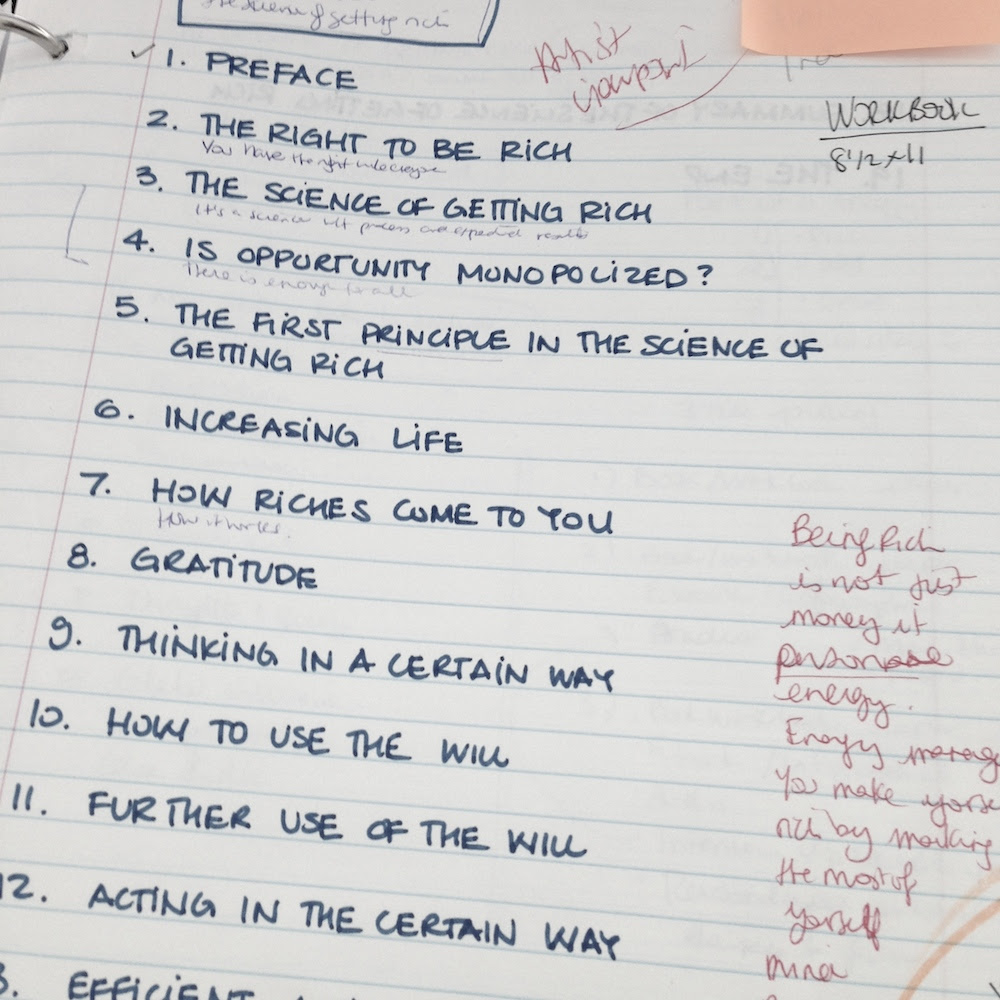 of getting rich
1. PREFACE
Artist
viewpoint
WORKBOOK
8 1/2 x 11
2. THE RIGHT TO BE RICH
You have the right to
3. THE SCIENCE OF GETTING RICH
It's a science process expected results
4. IS OPPORTUNITY MONOPOLIZED?
There is enough for all
5. THE FIRST PRINCIPLE IN THE SCIENCE OF
GETTING RICH
6. INCREASING LIFE
7. HOW RICHES COME TO YOU
How it works.
8. GRATITUDE
9. THINKING IN A CERTAIN WAY
10. HOW TO USE THE WILL
11. FURTHER USE OF THE WILL
12. ACTING IN THE CERTAIN WAY
EFFICIENT
Being Rich
is not just
money it
energy.
You make
rich by making
the most of
yorself
mind